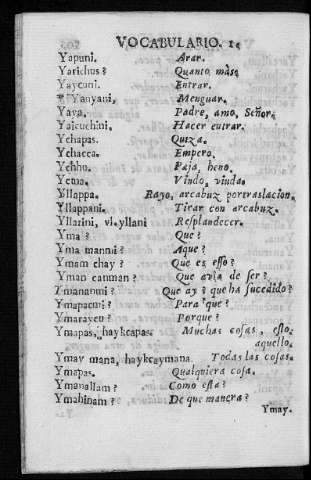 VOCABULARIO. I.
Yapuni. Arar.
Yarichus? Quanto màs.
Yaycuni. Entrar.
Yanyani, Menguar.
Yaya. Padre, amo, Señor.
Yaicuchini. Hacer entrar.
Ychapas. Quiza.
Ychacca. Empero.
Ychhu. Paja, heno.
Ycma. Viudo, viuda.
Yllappa. Rayo, arcabuz por traslacion.
Yllappani. Tirar con arcabuz.
Yllarini, vl. yllani Resplandecer.
Yma? Que?
Yma manni? Aque?
Ymam chay? Que es esso?
Yman canman? Que avia de ser?
Ymananmi? Que ay? que ha sucedido?
Ymapacmi? Para que?
Ymarayeu? Porque?
Ymapas, haykcapas. Muchas cosas, esto,
aquello.
Ymay mana, haykcaymana. Todas las cosas.
Ymapas. Qualquiera cosa.
Ymanallam? Como esta?
Ymahinam? De que manera?
Ymay.